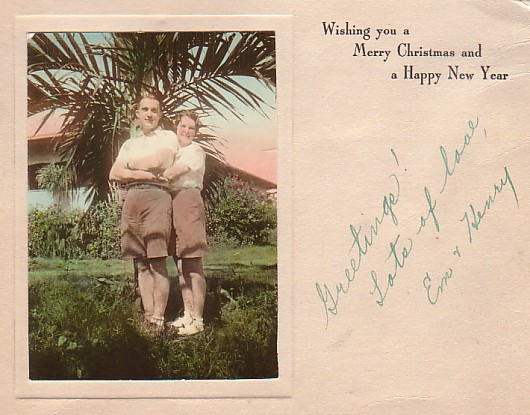 Wishing you a
Merry Christmas and
a Happy New Year
Greetings!
Lots of love,
Em & Henry